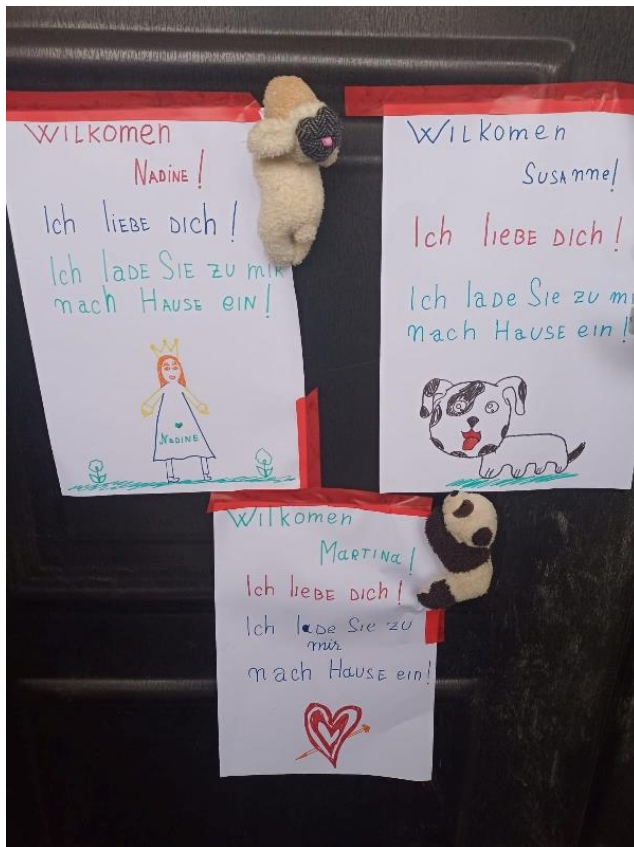 WILKOMEN
NADINE!
Ich lieBE Dich!
Ich laDE SIE zu miR
nach HAUSE EIN!
NADINE
WILKOMEN
SUSAnne!
Ich lieBE Dich!
Ich laDe Sie zu mi
nach Hause ein!
Wilkomen
MARTINa!
Ich lieBE Dich!
Ich laDe Sie zu
mir
nach HausE ein!